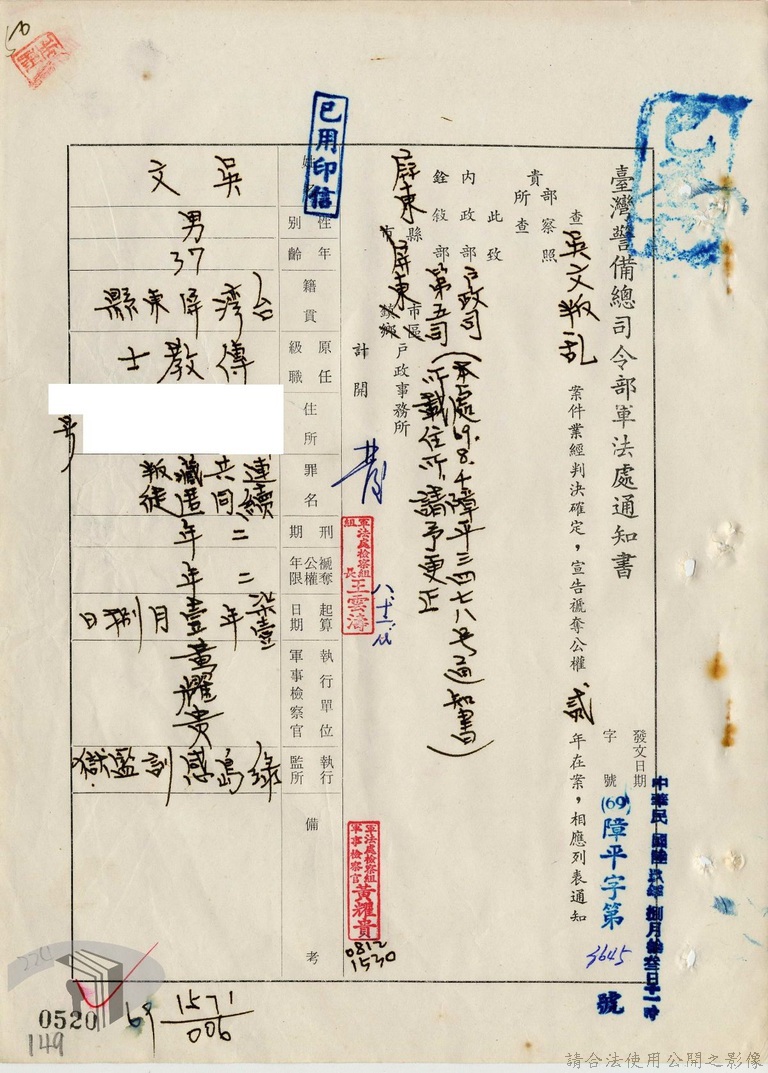 臺灣警備總司令部軍法處通知書
發文日期
中華民國陸玖年捌月拾叁日十一時
字號
(69)障平字第3645號
查吳文叛乱案件業經判決確定，宣告褫奪公權貳年在案，相應列表通知
貴部所察照查
此致
內政部戶政司
銓敘部第五司
(本處69.8.4障平三四七八号通知書)
所載住所請予更正
屏東縣市屏東市區鎮鄉戶政事務所
計開
軍法處檢察組組長王雲濤
軍法處檢察組軍事檢察官黃耀貴
0812
1530
已用印信
姓名
吳文
性別
男
年齡
37
籍貫
台灣屏東縣
原任級職
傳教士
住所
罪名
連續共同藏匿叛徒
刑期
二年
褫奪公權年限
二年
起算日期
柒壹年壹月捌日
執行單位軍事檢察官
黃耀貴
執行監所
綠島感訓監獄
備考
224
0520
149
69
1571
006
請合法使用公開之影像